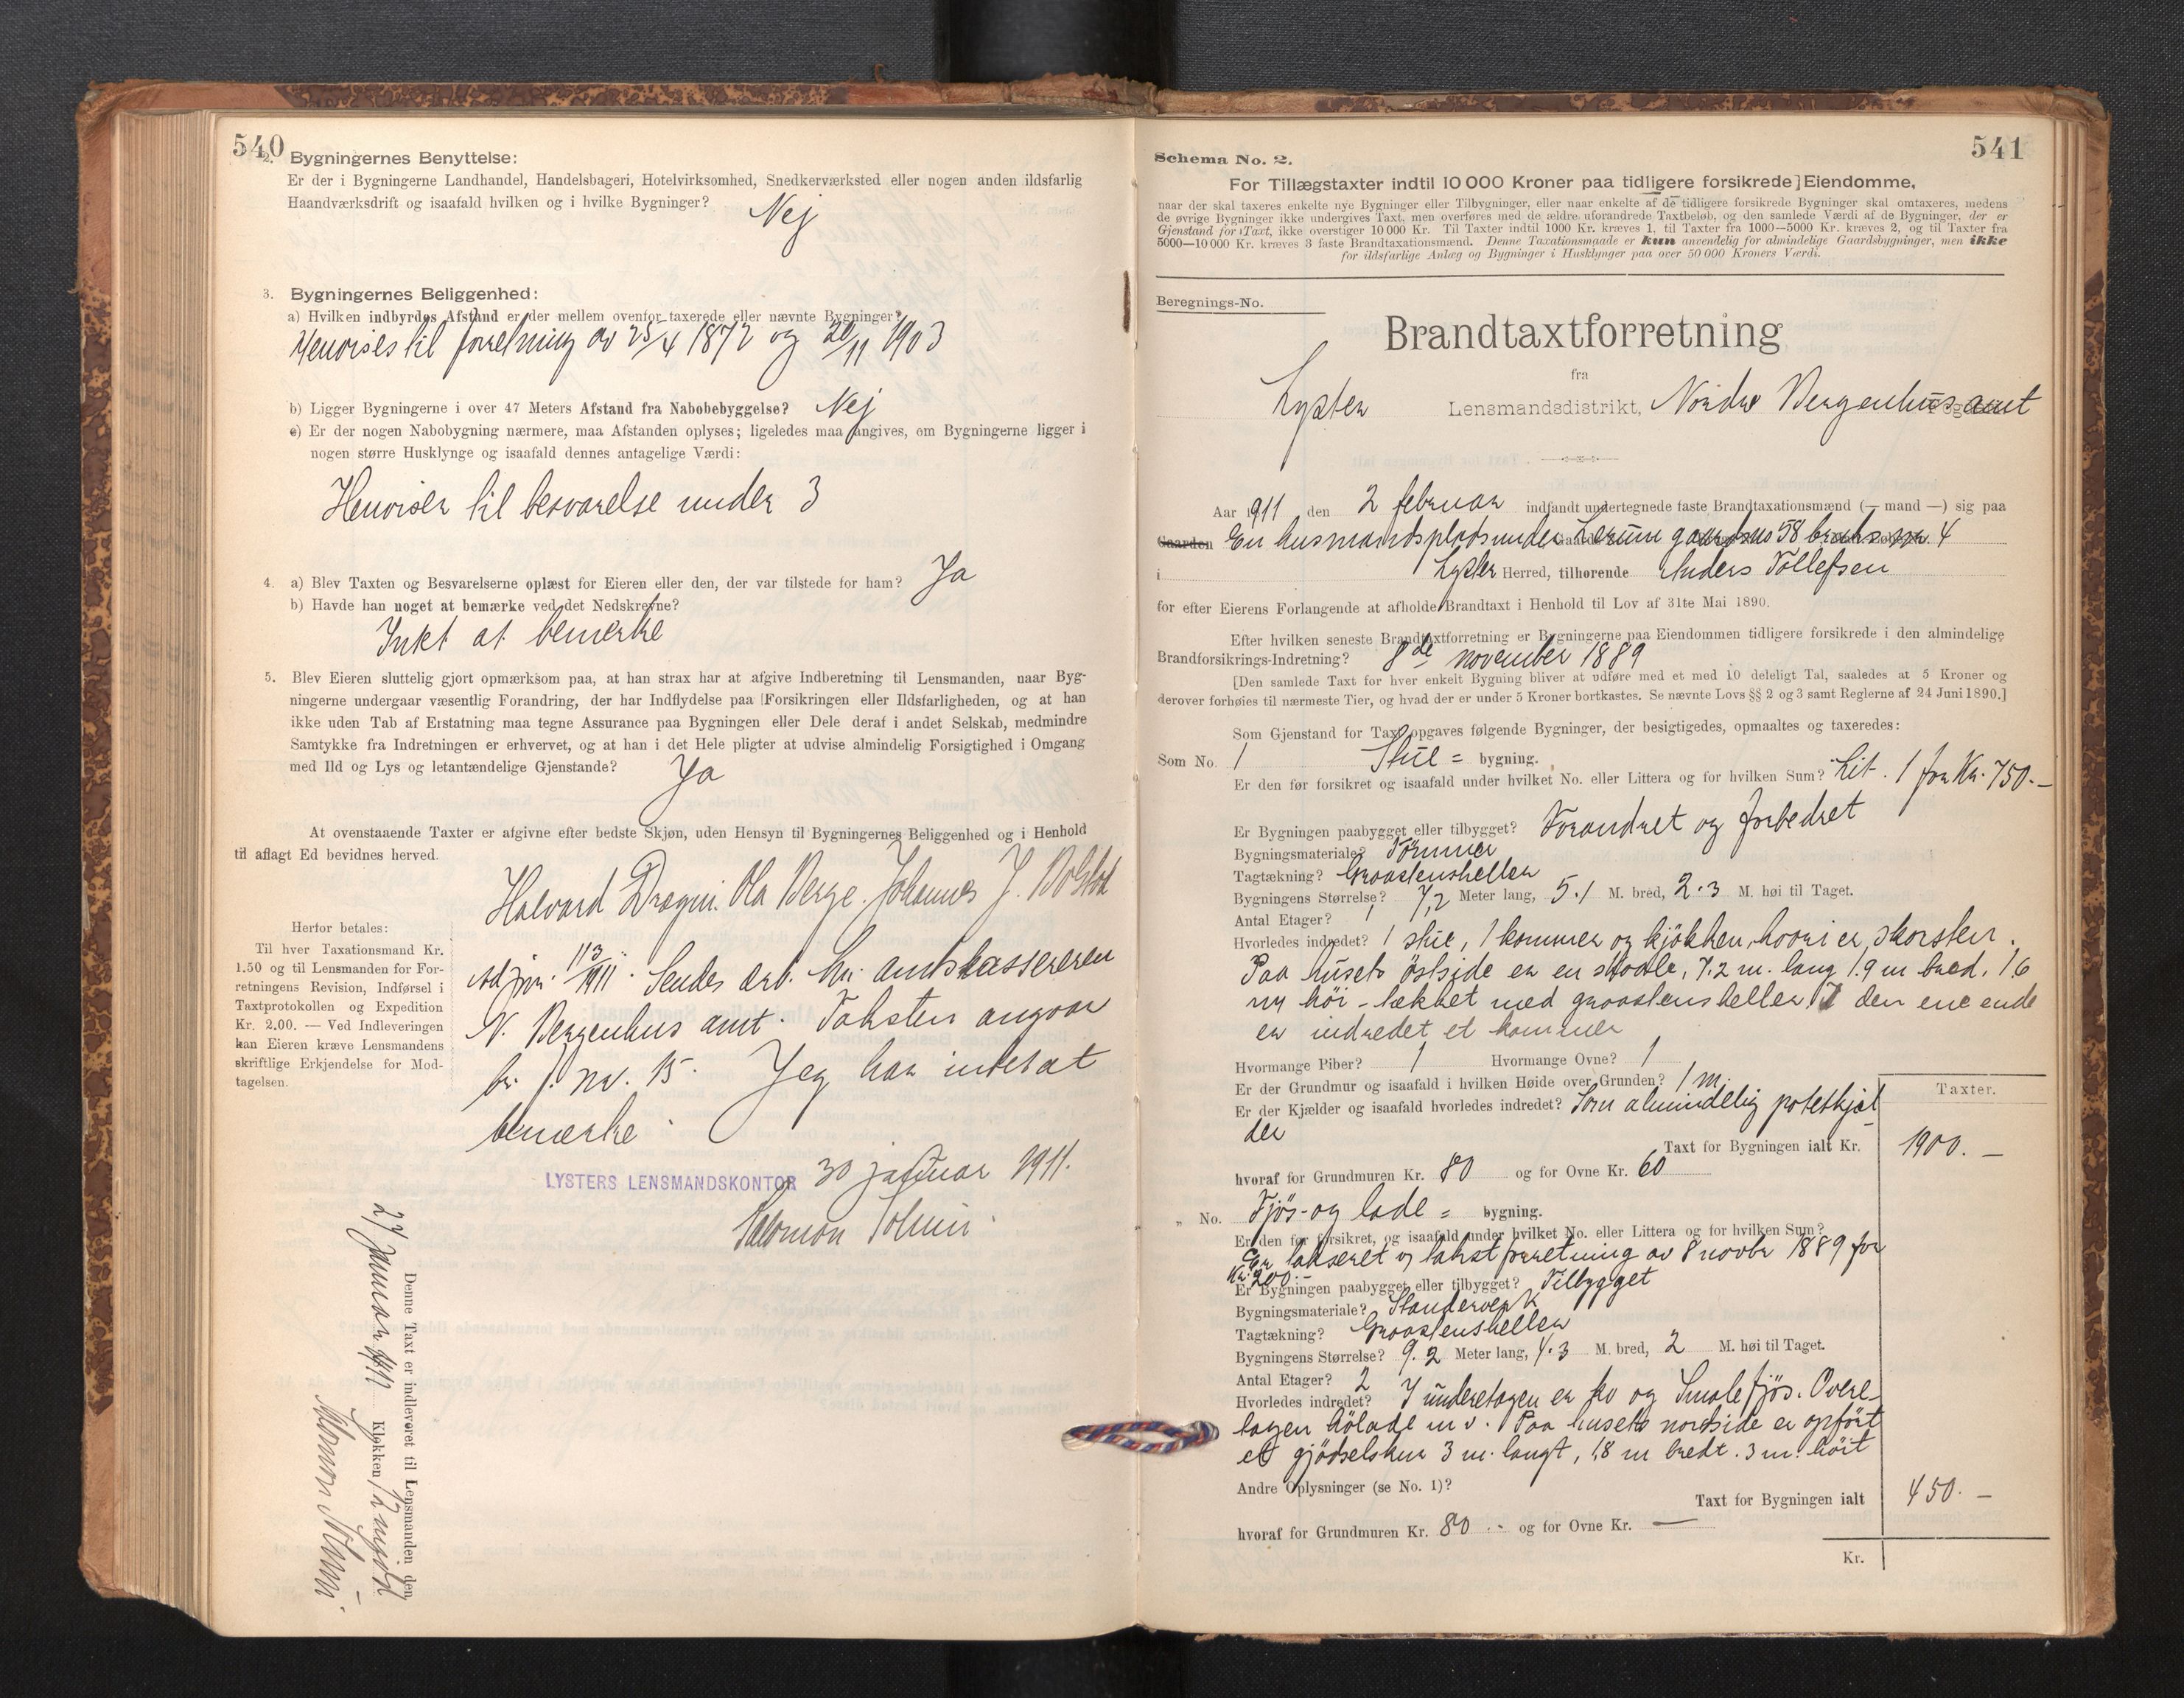 540
2. Bygningernes Benyttelse:
Er der i Bygningerne Landhandel, Handelsbageri, Hotelvirksomhed, Snedkerværksted eller nogen anden ildsfarlig
Haandværksdrift og isaafald hvilken og i hvilke Bygninger? Nej
3. Bygningernes Beliggenhed:
a) Hvilken indbyrdes Afstand er der mellem ovenfor taxerede eller nævnte Bygninger?
Henvises til forretning av 25/4 1872 og 20/11 1903
b) Ligger Bygningerne i over 47 Meters Afstand fra Nabobebyggelse? Nej
c) Er der nogen Nabobygning nærmere, maa Afstanden oplyses; ligeledes maa angives, om Bygningerne ligger i
nogen større Husklynge og isaafald dennes antagelige Værdi:
Henviser til besvarelse under 3
4. a) Blev Taxten og Besvarelserne oplæst for Eieren eller den, der var tilstede for ham? Ja
b) Havde han noget at bemærke ved det Nedskrevne?
Intet at bemerke
5. Blev Eieren sluttelig gjort opmærksom paa, at han strax har at afgive Indberetning til Lensmanden, naar Byg-
ningerne undergaar væsentlig Forandring, der har Indflydelse paa Forsikringen eller Ildsfarligheden, og at han
ikke uden Tab af Erstatning maa tegne Assurance paa Bygningen eller Dele deraf i andet Selskab, medmindre
Samtykke fra Indretningen er erhvervet, og at han i det Hele pligter at udvise almindelig Forsigtighed i Omgang
med Ild og Lys og letantændelige Gjenstande? Ja
At ovenstaaende Taxter er afgivne efter bedste Skjøn, uden Hensyn til Bygningernes Beliggenhed og i Henhold
til aflagt Ed bevidnes herved.
Halvard Dregni. Ola Berge. Johannes J. Bolstad
Herfor betales:
Til hver Taxationsmand Kr.
1.50 og til Lensmanden for For-
retningens Revision, Indførsel i
Taxtprotokollen og Expedition
Kr. 2.00. — Ved Indleveringen
kan Eieren kræve Lensmandens
skriftlige Erkjendelse for Mod-
tagelsen.
Adj nr. 113/1911. Sendes ærb. hr. amtskassereren
N. Bergenhus amt. Taksten angaar
br. f. nr. 15. Jeg har intet at
bemærke.
LYSTERS LENSMANDSKONTOR 30 januar 1911.
Salomon
Denne Taxt er indleveret til Lensmanden den
27 januar 1911 Klokken 12 middag
Salomon
541
Schema No. 2.
For Tillægstaxter indtil 10 000 Kroner paa tidligere forsikrede Eiendomme,
naar der skal taxeres enkelte nye Bygninger eller Tilbygninger, eller naar enkelte af de tidligere forsikrede Bygninger skal omtaxeres, medens
de øvrige Bygninger ikke undergives Taxt, men overføres med de ældre uforandrede Taxtbeløb, og den samlede Værdi af de Bygninger, der er
Gjenstand for Taxt, ikke overstiger 10 000 Kr. Til Taxter indtil 1000 Kr. kræves 1, til Taxter fra 1000—5000 Kr. kræves 2, og til Taxter fra
5000—10 000 Kr. kræves 3 faste Brandtaxationsmænd. Denne Taxationsmaade er kun anvendelig for almindelige Gaardsbygninger, men ikke
for ildsfarlige Anlæg og Bygninger i Husklynger paa over 50 000 Kroners Værdi.
Beregnings-No.
Brandtaxtforretning
fra
Lyster Lensmandsdistrikt, Nordre Bergenhus amt
Aar 1911 den 2 februar indfandt undertegnede faste Brandtaxationsmænd (— mand —) sig paa
Gaarden En husmandsplads under Lerum gaardsno 58 bruksnr. 4
i Lyster Herred, tilhørende Anders Tollefsen
for efter Eierens Forlangende at afholde Brandtaxt i Henhold til Lov af 31te Mai 1890.
Efter hvilken seneste Brandtaxtforretning er Bygningerne paa Eiendommen tidligere forsikrede i den almindelige
Brandforsikrings-Indretning? 8de november 1889
[Den samlede Taxt for hver enkelt Bygning bliver at udføre med et med 10 deleligt Tal, saaledes at 5 Kroner og
derover forhøies til nærmeste Tier, og hvad der er under 5 Kroner bortkastes. Se nævnte Lovs §§ 2 og 3 samt Reglerne af 24 Juni 1890.]
Som Gjenstand for Taxt opgaves følgende Bygninger, der besigtigedes, opmaaltes og taxeredes:
Som No. 1 Stue = bygning.
Er den før forsikret og isaafald under hvilket No. eller Littera og for hvilken Sum? Lit. 1 for Kr. 750.-
Er Bygningen paabygget eller tilbygget? Forandret og forbedret
Bygningsmateriale? Tömmer
Tagtækning? Graastensheller
Bygningens Størrelse? 7,2 Meter lang, 5.1 M. bred, 2.3 M. høi til Taget.
Antal Etager? 1
Hvorledes indredet? 1 stue, 1 kammer og kjökken, hvori er skorsten.
Paa husets östside er en skaale, 7.2 m. lang 1.9 m bred, 1.6
m höi - tækket med graastensheller. I den ene ende
er indredet et kammer
Hvormange Piber? 1 Hvormange Ovne? 1
Er der Grundmur og isaafald i hvilken Høide over Grunden? 1 m.
Er der Kjælder og isaafald hvorledes indredet? Som almindelig potetkjæl-
der
Taxter.
Taxt for Bygningen ialt Kr. 1900.—
hvoraf for Grundmuren Kr. 80 og for Ovne Kr. 60
„ No. Fjös- og lade = bygning.
Er den før forsikret, og isaafald under hvilket No. eller Littera og for hvilken Sum?
Er takseret v takstforretning av 8 novbr 1889 for
Kr. 200.-
Er Bygningen paabygget eller tilbygget? Tilbygget
Bygningsmateriale? Standerverk
Tagtækning? Graastensheller
Bygningens Størrelse? 9.2 Meter lang, 4.3 M. bred, 2 M. høi til Taget.
Antal Etager? 2
Hvorledes indredet? I underetagen er ko og Smalefjös. Overe-
tagen hölade m v. Paa husets nordside er opfört
et gjödselskur 3 m. langt, 1,8 m bredt. 3 m. höit
Andre Oplysninger (se No. 1)?
Taxt for Bygningen ialt 450.—
hvoraf for Grundmuren Kr. 80.- og for Ovne Kr. —
Kr.